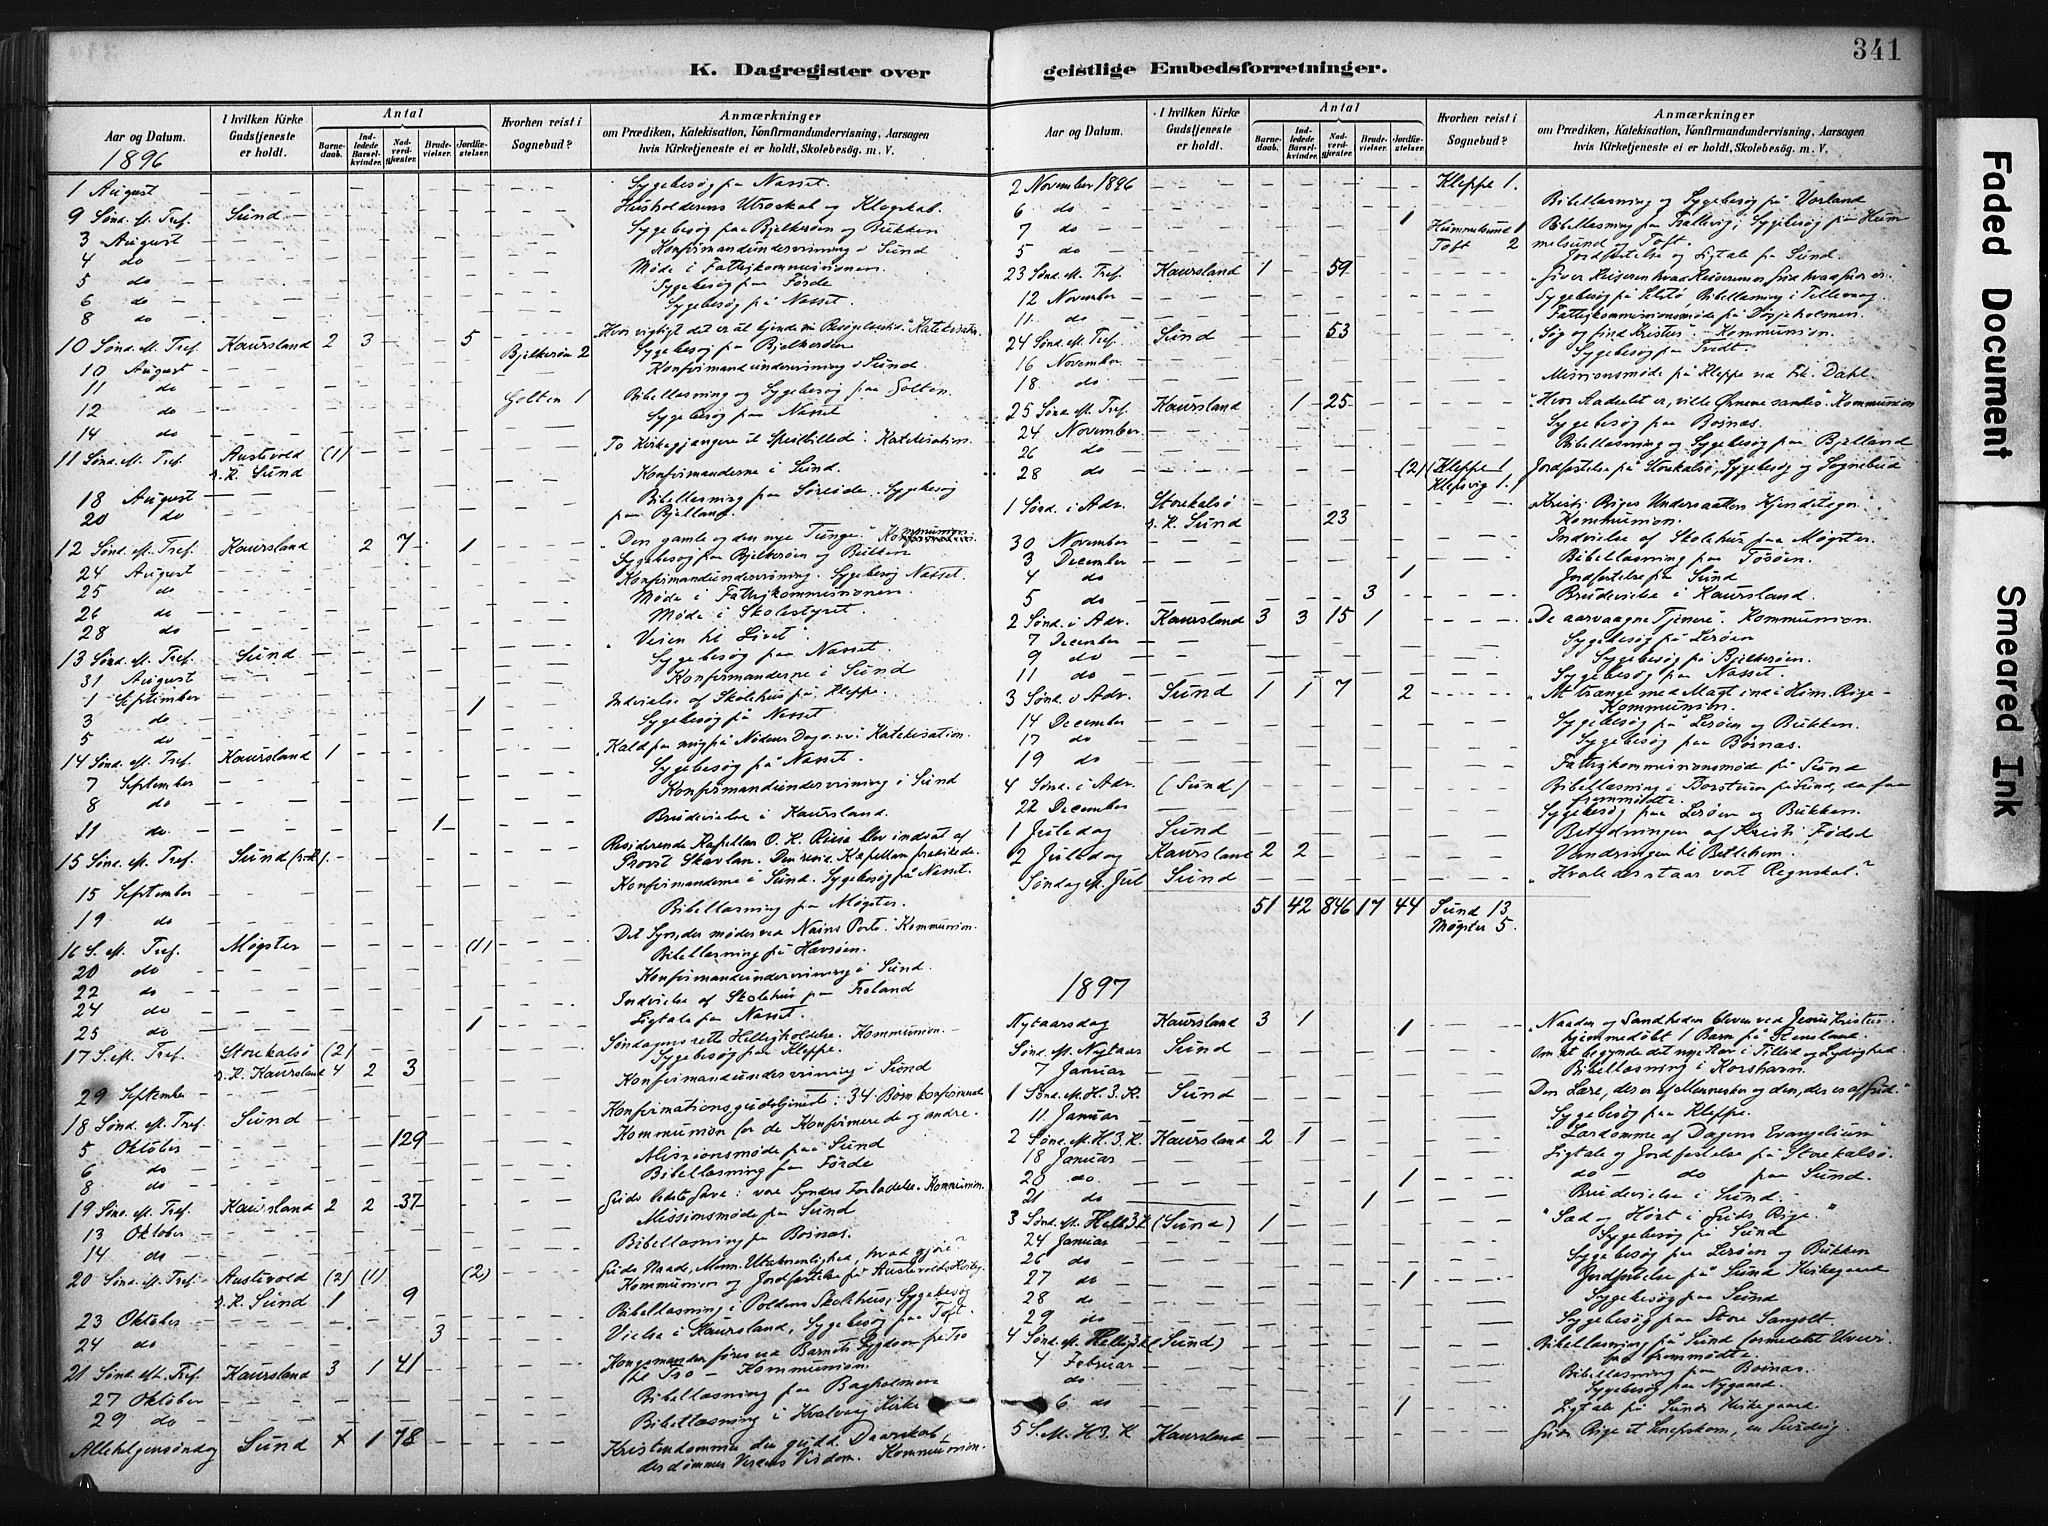 341
K. Dagregister over geistlige Embedsforretninger.
Aar og Datum. I hvilken Kirke Gudstjeneste er holdt. Antal Barnedaab. Indledede Barselkvinder. Nadverdgjester. Brudevielser. Jordfæstelser. Hvorhen reist i Sognebud? Anmærkninger om Prædiken, Katekisation, Konfirmandundervisning, Aarsagen hvis Kirketjeneste ei er holdt, Skolebesøg. m. V.
1896
1 August Sygebesøg paa Nasset.
9 Sønd. e. Tref. Sund Husholderens Utroskab og Klogskab.
3 August Sygebesøg paa Bjelkerøen og Bukken
4 do Konfirmandundervisning i Sund
5 do Møde i Fattigkommissionen
6 do Sygebesøg paa Førde
8 do Sygebesøg på Nasset.
10 Sønd. e. Tref. Kaursland 2 3 5 Hvor vigtigt det er at kjende sin Besøgelsestid. Katekisation.
10 August Bjelkerøen 2 Sygebesøg paa Bjelkerøen
11 do Konfirmandundervisning i Sund.
12 do Golten 1 Bibellæsning og Sygebesøg paa Golten.
14 do Sygebesøg paa Nasset.
11 Sønd. e. Tref. Austevold (1) To Kirkegjængere et Speilbilled. Katekisation.
r. K. Sund
18 August Konfirmanderne i Sund.
20 do Bibellæsning paa Søreide. Sygebesøg
paa Bjelland.
12 Sønd. e. Tref. Kaursland 2 7 1 "Den gamle og den nye Tunge". Kommunion.
24 August Sygebesøg paa Bjelkerøen og Bukken
25 do Konfirmandundervisning. Sygebesøg Nasset.
26 do Møde i Fattigkommissionen.
28 do Møde i Skolestyret.
13 Sønd. e. Tref. Sund "Veien til Livet".
31 August Sygebesøg paa Nasset.
1 September Konfirmanderne i Sund
3 do 1 Indvielse af Skolehus på Kleppe.
5 do Sygebesøg på Nasset
14 Sønd. e. Tref. Kaursland 1 "Kald paa mig på Nødens Dag o.s.v." Katekisation.
7 September Sygebesøg på Nasset.
8 do Konfirmandundervisning i Sund
11 do 1 Brudevielse i Kaursland.
15 Sønd. e. Tref. Sund (r.d.) Residerende Kapellan O. K. Riisa blev indsat af
Provst Skavlan. Den resid. Kapellan prædikede.
15 September Konfirmanderne i Sund. Sygebesøg på Nasset.
19 do Bibellæsning paa Møgster.
16 S. e. Tref. Møgster (1) Det Syn, der mødes ved Nains Port. Kommunion.
20 do Bibellæsning på Hævrøen.
22 do Konfirmandundervisning i Sund.
24 do Indvielse af Skolehus paa Troland
25 do 1 Ligtale paa Nasset.
17 S. e. Tref. Storekalsø (2) Søndagens rette Helligholdelse. Kommunion.
r. K. Kaursland 4 2 3 Sygebesøg paa Kleppe.
29 September Konfirmandundervisning i Sund
18 Sønd. e. Tref. Sund Konfirmationsgudstjeneste: 34 Børn konfirmerede
5 Oktober 129 Kommunion for de Konfirmerede og andre.
6 do Missionsmøde paa Sund
8 do Bibellæsning paa Førde
19 Sønd. e. Tref. Kaursland 2 2 37 Guds bedste Gave: vore Synders Forladelse. Kommunion.
13 Oktober Missionsmøde paa Sund
14 do Bibellæsning paa Bosnæs.
20 Sønd. e. Tref. Austevold (2) (1) (2) Guds Naade, Menn. Utaknemlighed, hvad gjøre?
r. K. Sund 1 9 Kommunion og Jordfæstelse på Austevolds Kirkeg.
23 Oktober Bibellæsning i Poldens Skolehus, Sygebesøg
24 do 3 Vielse i Kaursland, Sygebesøg paa Toft.
21 Sønd. e. Tref. Kaursland 3 1 41 Kongsmanden føres ved Barnets Sygdom fra Tro
til Tro - Kommunion.
27 Oktober Bibellæsning paa Bagholmen
29 do Bibellæsning i Kvalvaag Kirke
Allehelgensøndag Sund 1 78 Kristendommen den guddl. Daarskab
der dømmer Verdens Visdom. Kommunion.
2 November 1896 Kleppe 1.
6 do Bibellæsning og Sygebesøg på Vorland
7 do 1 Hummelsund 1 Bibellæsning paa Trællevig; Sygebesøg paa Hum
5 do Toft 2 melsund og Toft.
Jordfæstelse og Ligtale på Sund.
23 Sønd. e. Tref. Kaursland 1 59 "Giver Keiseren hvad Keiserens er, Gud hvad Guds er."
12 November Sygebesøg på Selstø, Bibellæsning i Tellevaag.
11 do Fattigkommissionsmøde på Dosjeholmen.
24 Sønd. e. Tref. Sund 53 "Søg og find Kristus" - Kommunion.
16 November Sygebesøg paa Tvedt.
18 do Missionsmøde på Kleppe ved Frk. Dahl.
25 Sønd. e. Tref. Kaursland 1 25 "Hvor Aadselet er, ville Ørnene samles." Kommunion
24 November Sygebesøg paa Bosnæs.
26 do Bibellæsning og Sygebesøg paa Bjelland
28 do (2) (Kleppe 1 Jordfæstelse på Storekalsø, Sygebesøg og Sognebud
Klepsvig 1.)
1 Sønd. i Adv. Storekalsø "Kristi Riges Undersaatters Kjendetegn."
r. K. Sund 23 Kommunion.
30 November Indvielse af Skolehus paa Møgster.
3 December Bibellæsning paa Tøsøen.
4 do 1 Jordfæstelse på Sund
5 do 3 Brudevielse i Kaursland.
2 Sønd. i Adv. Kaursland 3 3 15 1 "De aarvaagne Tjenere". Kommunion.
7 December Sygebesøg på Lerøen
9 do Sygebesøg på Bjelkerøen.
11 do Sygebesøg på Nasset.
3 Sønd. i Adv. Sund 1 1 7 2 "At trænge med Magt ind i Him. Rige" -
Kommunion.
14 December Sygebesøg på Lerøen og Bukken.
17 do Sygebesøg paa Bosnæs.
19 do Fattigkommissionsmøde på Sund
4 Sønd. i Adv. (Sund) Bibellæsning i Borstuen på Sund, da faa
fremmødte.
22 December Sygebesøg paa Lerøen og Bukken.
1 Juledag Sund Betydningen af Kristi Fødsel
2 Juledag Kaursland 2 2 "Vandringen til Betlehem."
Søndag e. Jul Sund "Hvorledes staar vort Regnskab?"
51 42 846 17 44 Sund 13
Møgster 5.
1897
Nytaarsdag Kaursland 3 1 1 "Naaden og Sandheden bleven ved Jesus Kristus"
hjemmedøbt 1 Barn på Stensland.
Sønd. e. Nytaar Sund Om at begynde det nye Aar i Tillid og Lydighed.
7 Januar Bibellæsning i Korshavn.
1 Sønd. e. H. 3. K. Sund Den Lære, der er af Mennesker og den, der er af Gud.
11 Januar Sygebesøg paa Kleppe.
2 Sønd. e. H. 3. K. Kaursland 2 1 "Lærdomme af Dagens Evangelium"
18 Januar Ligtale og Jordfæstelse på Storekalsø.
20 do. 1 do - do paa Sund.
21 do 1 Brudevielse i Sund.
3 Sønd. e. Hell. 3 K. (Sund) 1 "Sæd og Høst i Guds Rige."
24 Januar Sygebesøg på Sund
26 do Sygebesøg paa Lerøen og Bukken
27 do 1 Jordfæstelse på Sund Kirkegaard
28 do Sygebesøg paa Sund
29 do Sygebesøg paa Store Sangolt
4 Sønd. e. Hell. 3 K. (Sund) Bibellæsning på Sund formedelst Uveir
faa fremmødte.
4 Februar Bibellæsning paa Bosnæs.
do. Sygebesøg paa Nygaard.
6 do 1 Ligtale på Sunds Kirkegaard.
5 S. e. H. 3. K. Kaursland Guds Rige et Sennepskorn, en Surdeig.
Faded Document
Smeared Ink